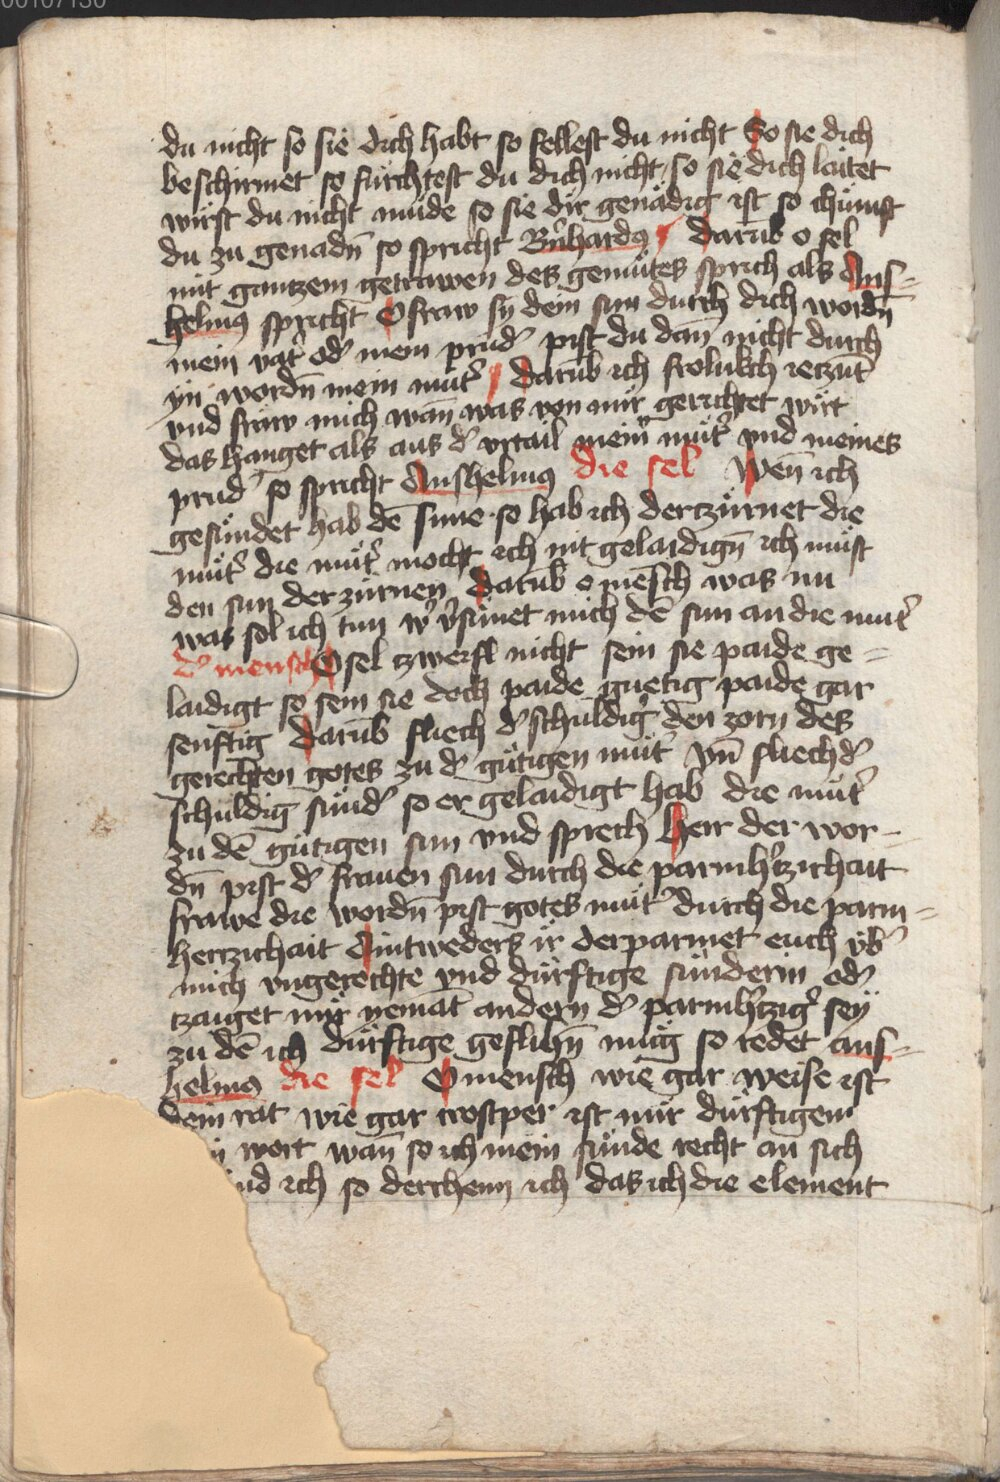 du nicht so sie dich habt so fellest du nicht So sie dich
beschirmet so fürchtest du dich nicht so sie dich laitet
wirst du nicht müde so sie dir genädig ist so chümst
du zu genadn̄ so spricht Bn̄hardꝰ Darūb o sel
mit gantzem getrawen des gemütes sprich als Ans-
helmꝰ spricht O fraw sy dein sun durch dich wordn̄
mein vat̉ od̉ mein prud̉ pist du dan̄ nicht durch
yn wordn̄ mein mut̉ Darūb ich frolukch ieczūt
vnd fraw mich wan̄ was von mir gerichtet wirt
das hanget als aus d̉ vrtail mein̉ müt̉ vnd meines
prud̉ so spricht Anshelmꝰ die sel Wen̄ ich
gesündet hab dē sune so hab ich derczürnet die
müt̉ die müt̉ mocht ich nit gelaidign̄ ich müst
den sun derzürnen Darūb o mēsch was nu
was sol ich tun w̉ v̉sünet mich dē sun an die mut̉
d̉ mensch O sel zweyfl nicht sein sie paide ge-
laidigt so sein sie doch paide guetig paide gar
senftig Darūb fliech d̉ schuldig̉ den zorn des
gerechten gotes zu d̉ gütigen müt̉ Yn̄ fliech d̉
schuldig sünd̉ so er gelaidigt hab die müt̉
zu dē gütigen sun vnd sprech Herr der wor-
dn̄ pist d̉ frauen sun durch die parmh̉tzichait
frawe die wordn̄ pist gotes müt̉ durch die parm-
herczichait Aintweders ir derparmet euch v̈b̉
mich vngerechte vnd dürftige sünderin od̉
tzaiget mir yemāt andern d̉ parmh̉tzig̉ sey
zu dē ich dürftige geflihn̄ müg so redet ans-
helmꝰ die sel O mensch wie gar weise ist
dein rat wie gar trostper ist mir dürftigem
wort wan̄ so ich mein sünde recht an sich
ich so derchenn ich das ich die element